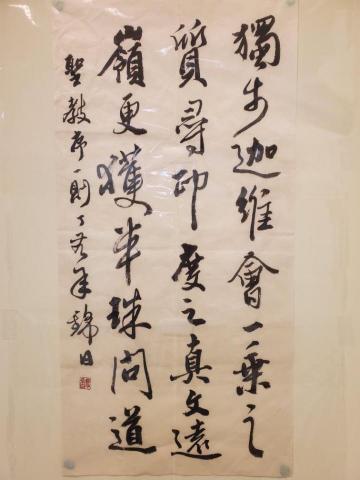 獨步迦維會一乘之
質尋印度之真文遠
嶺更獲半珠問道
聖教序一則丁亥年錦日